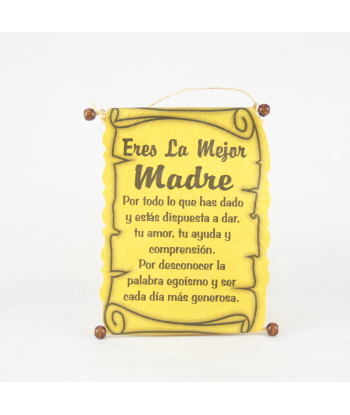 Eres La Mejor
Madre
Por todo lo que has dado
y estás dispuesta a dar,
tu amor, tu ayuda y
comprensión.
Por desconocer la
palabra egoísmo y ser
cada día más generosa.